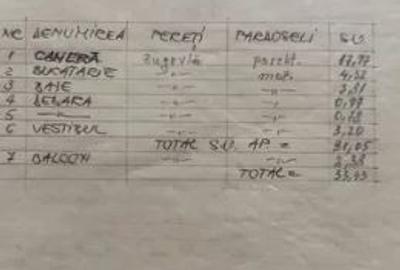 Nr DENUMIREA PERETI PARDOSELI S.U.
1 CAMERĂ Zugrăvit parch. 17,77
2 BUCATARIE -"- moz.
3 BAIE -"- -"- 3,31
4 DEBARA -"- -"- 0,97
5 -"- -"- -"-
6 VESTIBUL -"- -"- 3,20
TOTAL S.U. AP. =
7 BALCON -"- -"- 2,38
TOTAL=